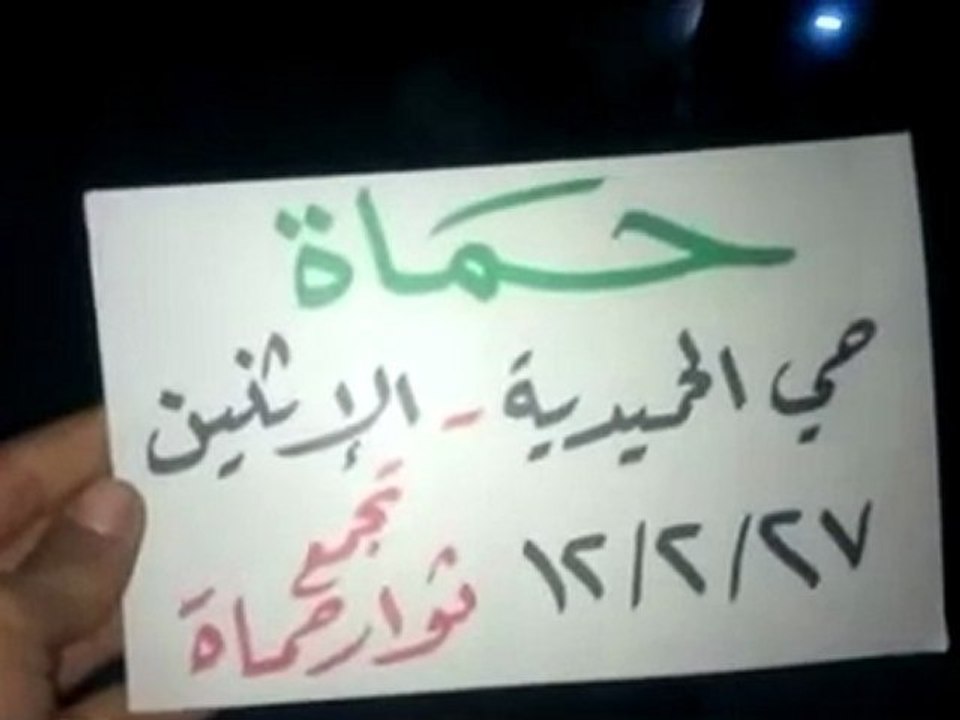 حماة
حي الحميدية - الإثنين
٢٧/٢/١٢
تجمع
ثوار حماة